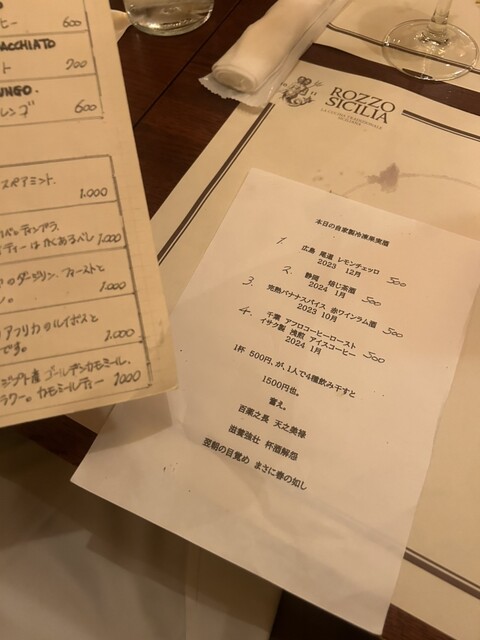 ヒー 600
ACCHIATO
ト 700
UNGO.
レンゴ 600
スペアミント.
1.000
ティーはかくあるべし 1.000
のダージリン. ファーストと
1.000
アフリカのルイボスと
です。 1.000
ジプト産 ゴールデンカモミール.
ラワー。カモミールティー 1000
ROZZO
SICILIA
LA CUCINA TRADIZIONALE
SICILIANA
本日の自家製冷凍果実酒
1. 広島 尾道 レモンチェッロ
2023 12月 500
2. 静岡 焙じ茶酒
2024 1月 500
3. 完熟バナナスパイス 赤ワインラム酒
2023 10月 500
4. 千葉 アフロコーヒーロースト
イサク製 浅煎 アイスコーヒー 500
2024 1月
1杯 500円、が、1人で4種飲み干すと
1500円也。
奮え。
百薬之長 天之美禄
滋養強壮 杯酒解怨
翌朝の目覚め まさに春の如し